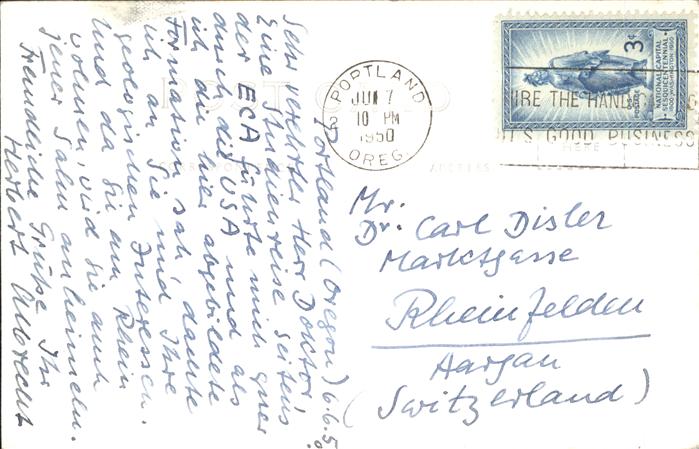 Portland (Oregon) 6.6.50
Sehr verehrter Herr Doctor!
Eine Studienreise seitens
der ECA führte mich quer
durch die USA und als
ich die hier abgebildete
Formation sah dachte
ich an Sie und Ihre
geologischen Interessen.
Und da Sie am Rhein
wohnen, wird Sie auch
jener Salm anheimeln.
Freundliche Grüße Ihr
Herbert Albrecht
POST
CORRESPONDENCE
ADDRESS
PORTLAND
JUN 7
10 PM
1950
OREG.
3¢
NATIONAL CAPITAL
SESQUICENTENNIAL
1800 WASHINGTON 1950
HIRE THE HANDICAPPED
IT'S GOOD BUSINESS
HERE
Mr.
Dr. Carl Disler
Marktgasse
Rheinfelden
Aargau
(Switzerland)